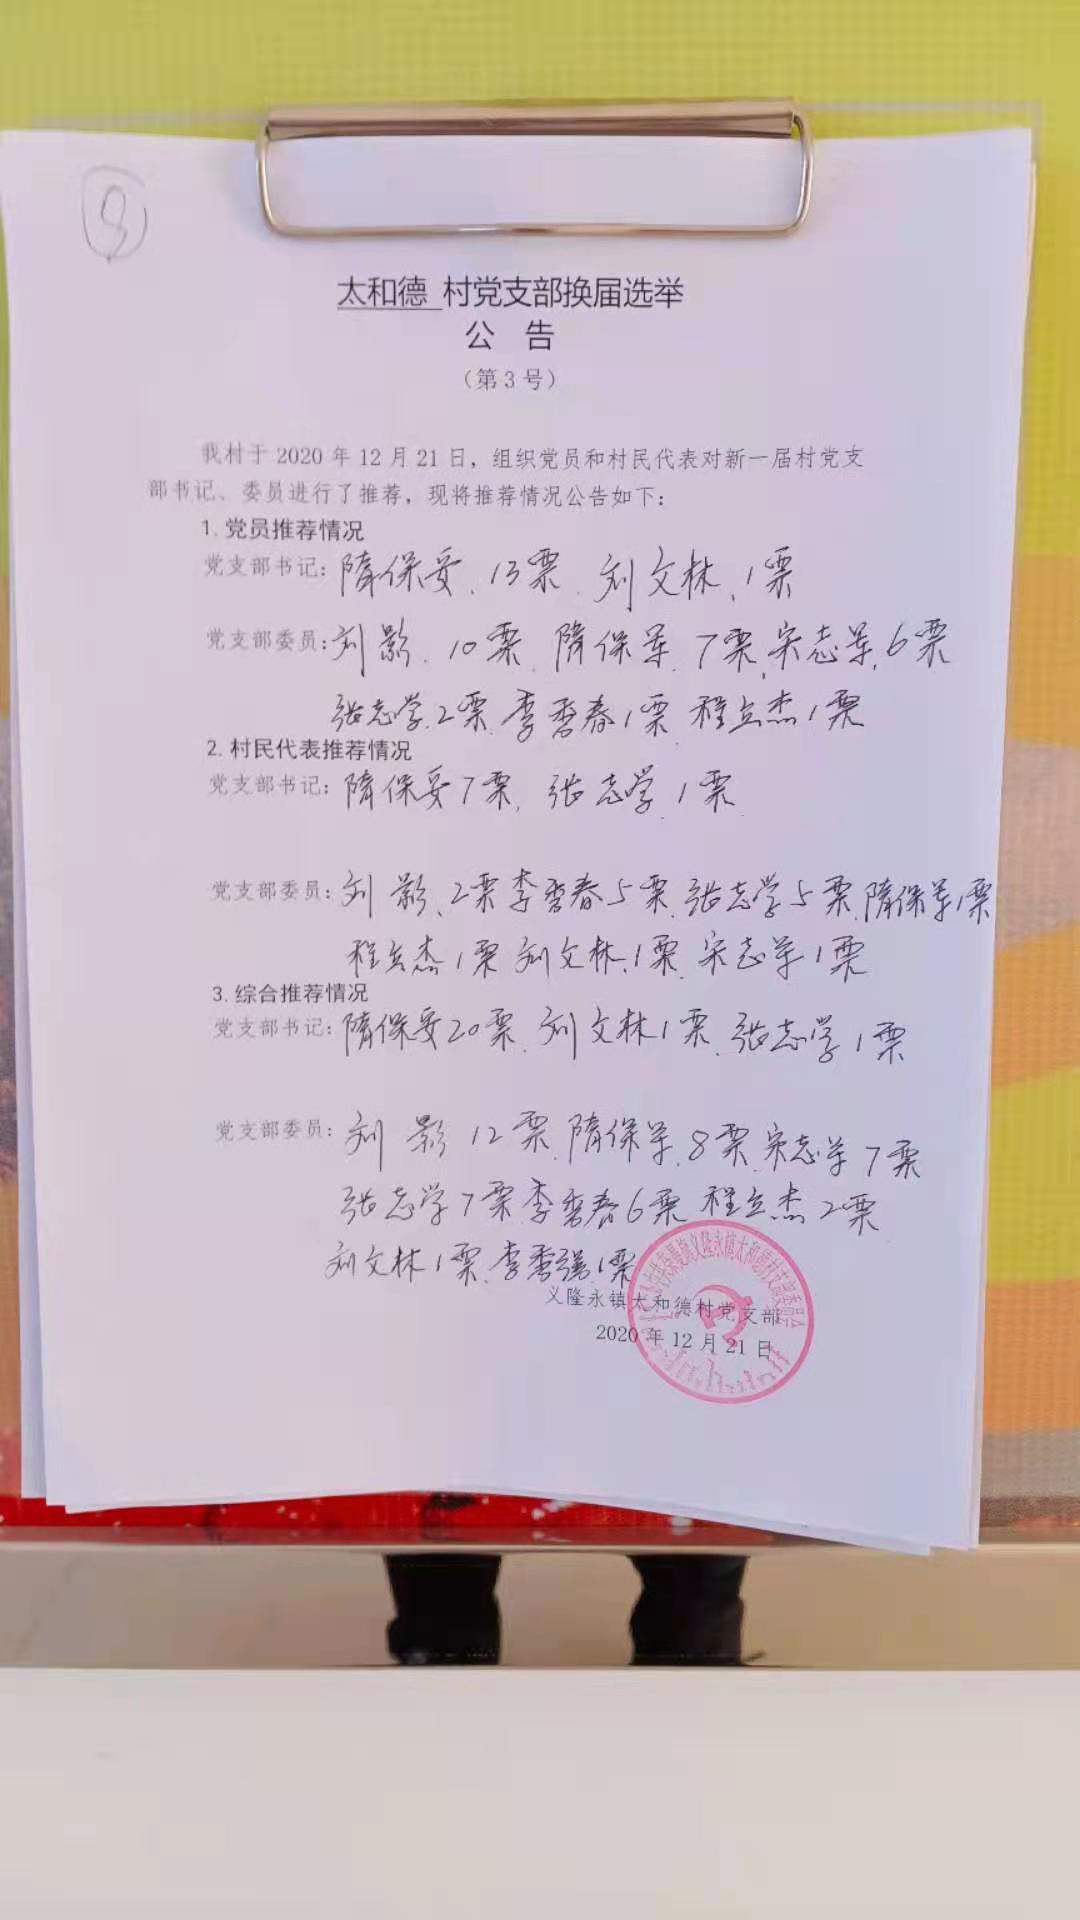 3
太和德 村党支部换届选举
公 告
（第3号）
我村于2020年12月21日，组织党员和村民代表对新一届村党支
部书记、委员进行了推荐，现将推荐情况公告如下：
1.党员推荐情况
党支部书记：隋保安、13票、刘文林、1票
党支部委员：刘影、10票、隋保军、7票、宋志军、6票
张志学、2票、李秀春1票、程立杰1票
2.村民代表推荐情况
党支部书记：隋保安7票，张志学、1票
党支部委员：刘影、2票李秀春5票、张志学5票、隋保军1票
程立杰1票 刘文林、1票、宋志军1票
3.综合推荐情况
党支部书记：隋保安20票、刘文林1票、张志学1票
党支部委员：刘影 12票、隋保军、8票、宋志军7票
张志学7票、李秀春6票 程立杰2票
刘文林1票、李秀强、1票
义隆永镇太和德村党支部
2020年12月21日
义隆永镇太和德村支部委员会